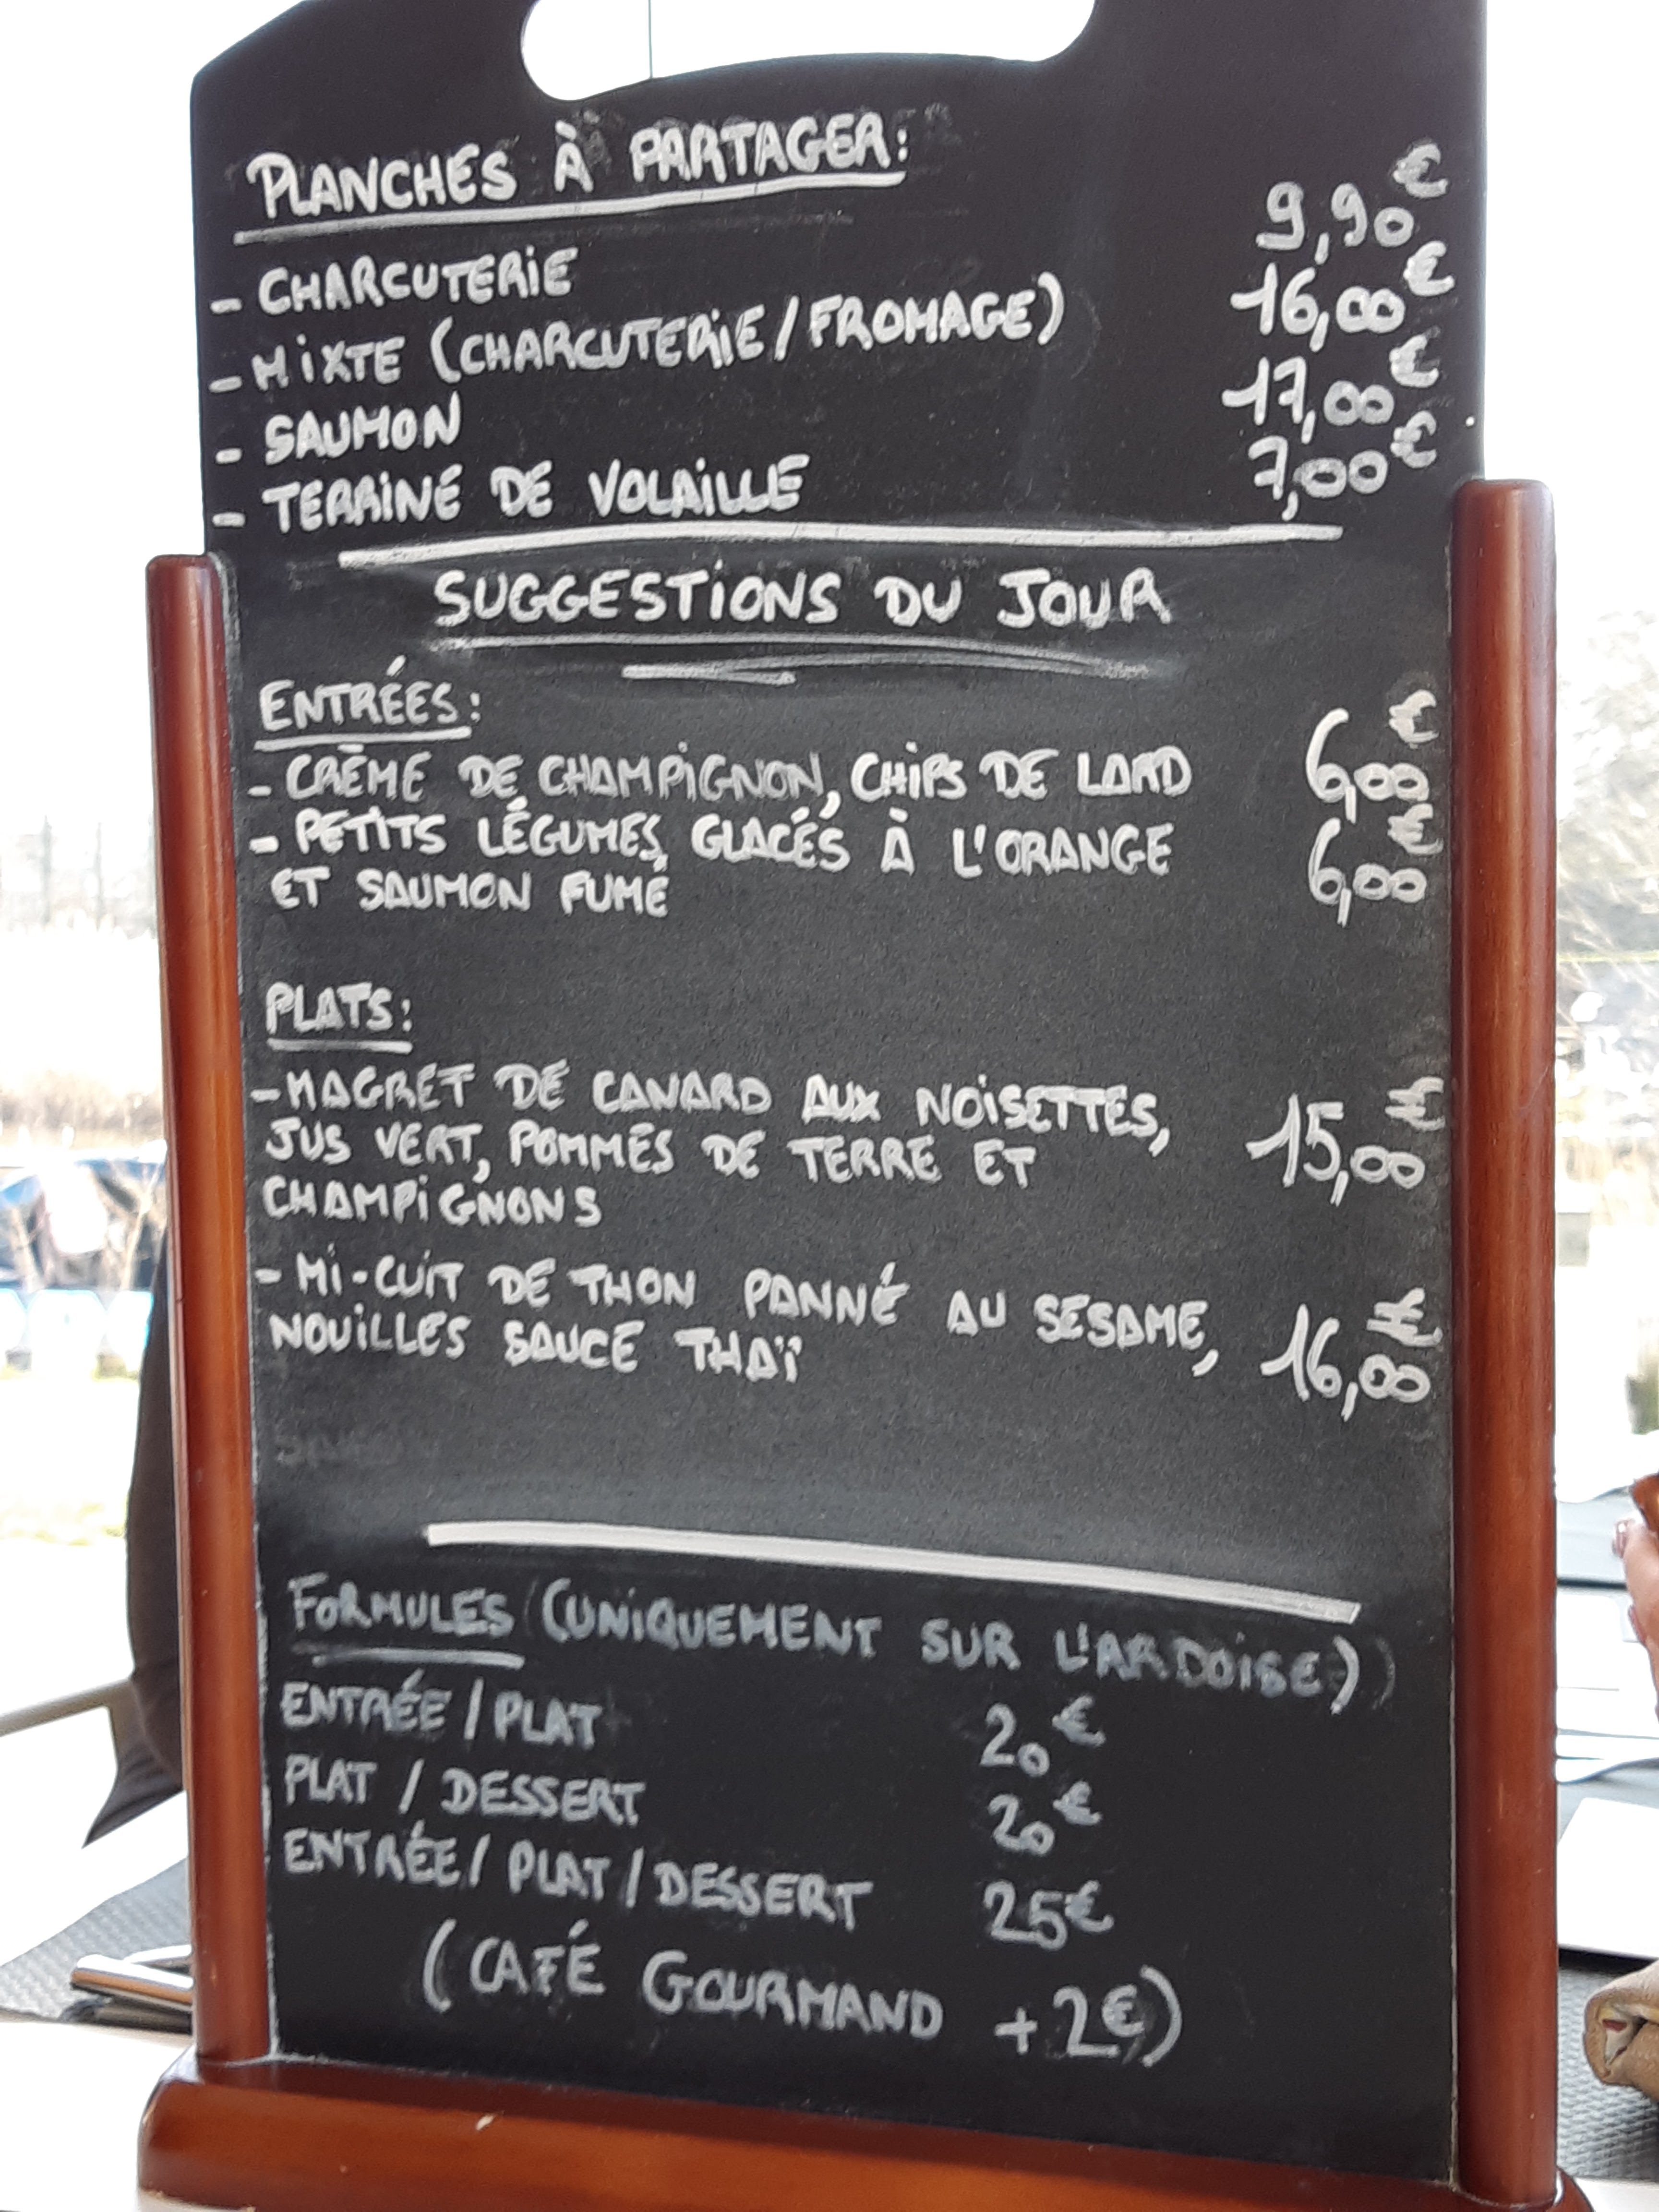 PLANCHES À PARTAGER:
- CHARCUTERIE 9,90€
- MIXTE (CHARCUTERIE/FROMAGE) 16,00€
- SAUMON 17,00€
- TERRINE DE VOLAILLE 7,00€
SUGGESTIONS DU JOUR
ENTRÉES:
- CRÈME DE CHAMPIGNON, CHIPS DE LARD 6,00€
- PETITS LÉGUMES GLACÉS À L'ORANGE 6,00€
ET SAUMON FUMÉ
PLATS:
- MAGRET DE CANARD AUX NOISETTES,
JUS VERT, POMMES DE TERRE ET 15,00€
CHAMPIGNONS
- MI-CUIT DE THON PANNÉ AU SESAME,
NOUILLES SAUCE THAÏ 16,00€
FORMULES (UNIQUEMENT SUR L'ARDOISE)
ENTRÉE / PLAT 20€
PLAT / DESSERT 20€
ENTRÉE / PLAT / DESSERT 25€
(CAFÉ GOURMAND +2€)